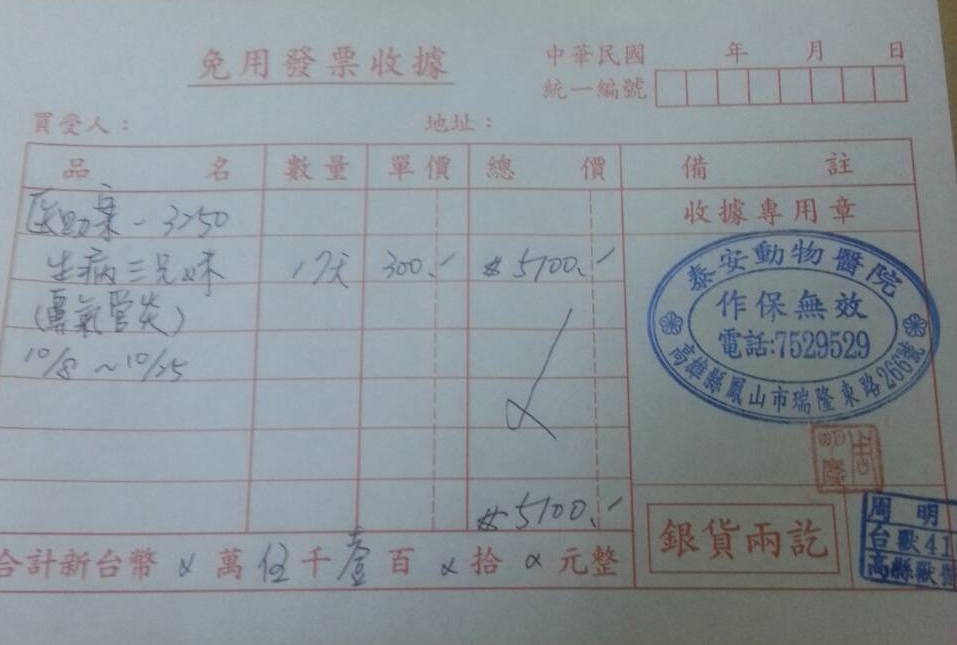 免用發票收據
中華民國 年 月 日
統一編號
買受人： 地址：
品名 數量 單價 總價 備註
医助案-3250
收據專用章
生病三兄妹 17天 300.- $5100.-
氣管炎)
10/8 ~ 10/25
泰安動物醫院
作保無效
電話:7529529
高雄縣鳳山市瑞隆東路266號
$5100.-
銀貨兩訖
周明
台獸41
高縣獸醫
合計新台幣 x 萬 伍 千 壹 百 x 拾 x 元整